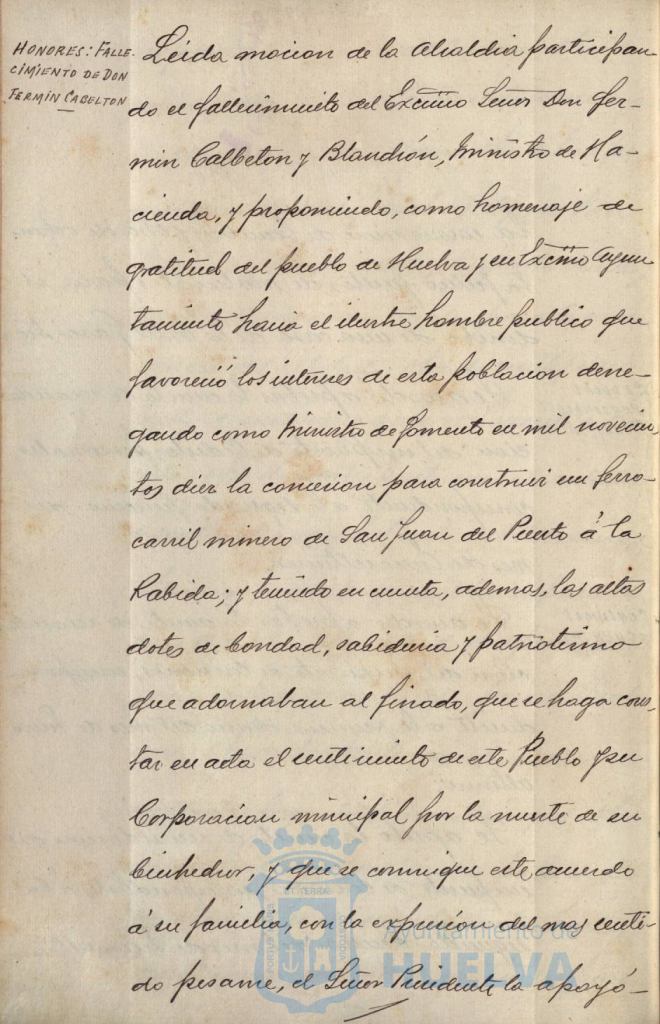 HONORES: FALLE-
CIMIENTO DE DON
FERMIN CABELTON
Leida mocion de la Alcaldia participan-
do el fallecimiento del Excmo Señor Don Fer-
min Calbeton y Blanchón, Ministro de Ha-
cienda, y proponiendo, como homenaje de
gratitud del pueblo de Huelva y su Excmo Ayun
tamiento hacia el ilustre hombre publico que
favoreció los intereses de esta poblacion dene-
gando como Ministro de Fomento en mil novecien-
tos diez la concesion para construir un ferro-
carril minero de San Juan del Puerto á la
Rabida; y teniendo en cuenta, ademas, las altas
dotes de bondad, sabiduria y patriotismo
que adornaban al finado, que se haga cons-
tar en acta el sentimiento de este Pueblo y su
Corporacion municipal por la muerte de su
bienhechor, y que se comunique este acuerdo
á su familia, con la expresión del mas senti-
do pesame, el Señor Presidente la apoyó-
Ayuntamiento de
HUELVA